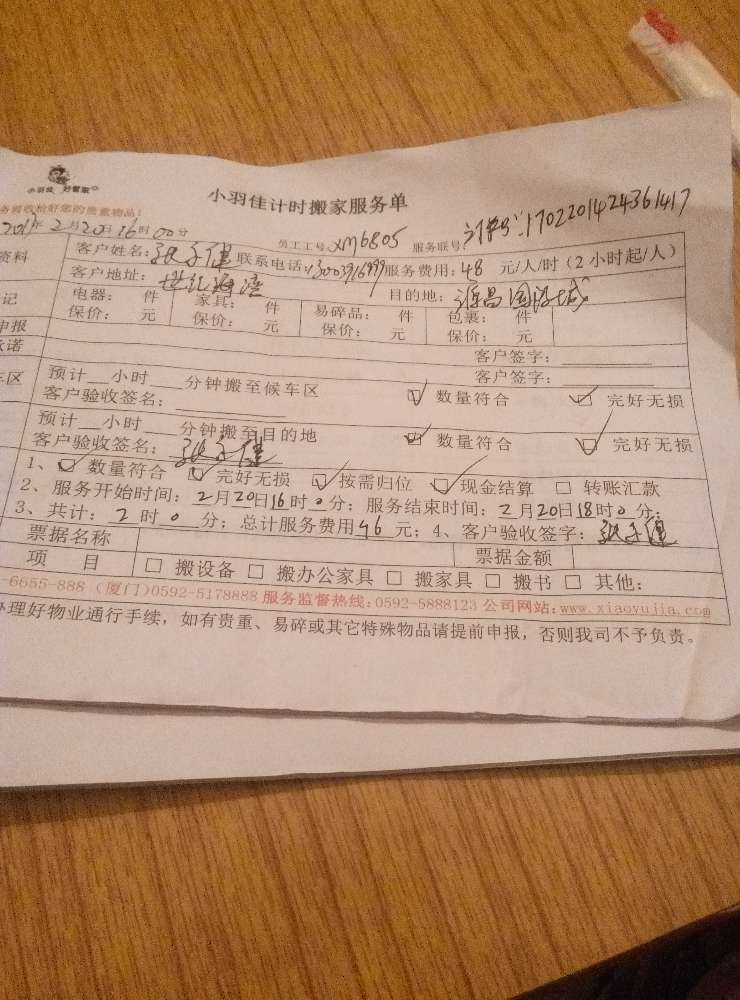 小羽佳 好管家
小羽佳计时搬家服务单
务必收拾好您的贵重物品!
2月20日16时00分
员工工号:XM6805 服务联号:
订单号:1702201424361417
资料 客户姓名:张子健 联系电话: 服务费用:48 元/人/时(2小时起/人)
客户地址:世纪海湾 目的地:源昌国际城
记 电器: 件 家具: 件 易碎品: 件 包裹: 件
保价: 元 保价: 元 保价: 元 保价: 元
申报 客户签字:
承诺 客户签字:
车区 预计__小时___分钟搬至候车区 ☑ 数量符合 ☑ 完好无损
客户验收签名:
预计__小时___分钟搬至目的地 ☑ 数量符合 ☑ 完好无损
客户验收签名:张子健
1、☑ 数量符合 ☑ 完好无损 ☑ 按需归位 ☑ 现金结算 □ 转账汇款
2、服务开始时间:2月20日16时0分;服务结束时间:2月20日18时0分;
3、共计:2时0分;总计服务费用96元;4、客户验收签字:张子健
票据名称 票据金额
项 目 □ 搬设备 □ 搬办公家具 □ 搬家具 □ 搬书 □ 其他:
-6655-888(厦门)0592-5178888 服务监督热线:0592-5888123 公司网站:www.xiaoyujia.com
办理好物业通行手续,如有贵重、易碎或其它特殊物品请提前申报,否则我司不予负责。